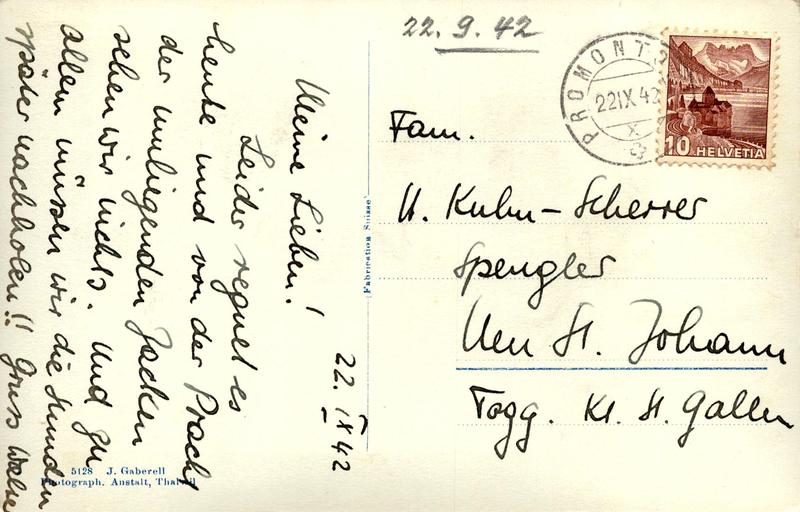 22. IX 42
Meine Lieben!
Leider regnet es
heute und von der Pracht
der umliegenden Zacken
sehen wir nichts. Und zu
allem müssen wir die Stunden
später nachholen!! Gruss
22. 9. 42
PROMONT
22 IX 42
X
10 HELVETIA
Fam.
U. Kuhn-Scherrer
Spengler
Neu St. Johann
Togg. Kt. St. Gallen
Fabrication Suisse
5128 J. Gaberell
Photograph. Anstalt, Thalwil